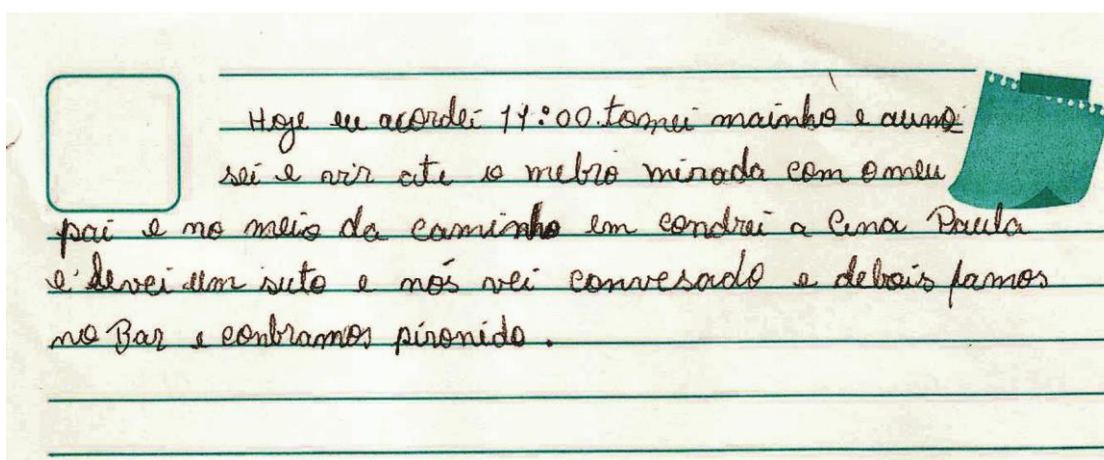 Hoje eu acordei 11:00 tomei mainho e aumo
sei e vir ate o mebro mirada com o meu
pai e no meio da caminho em condrei a Ana Paula
e devei um suto e nós vei convesado e debois famos
no Bar e conbramos pironido.